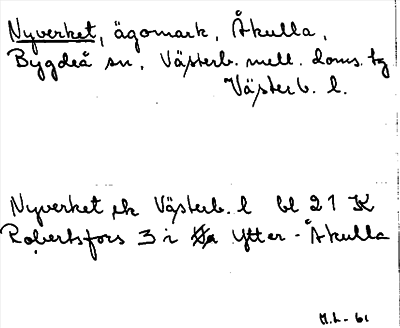 Nyverket, ägomark, Åkulla,
Bygdeå sn, Västerb. mell. doms. tg
Västerb. l.
Nyverket ek Västerb. l bl 21 K
Robertsfors 3 i Ytter-Åkulla
M.L - 61